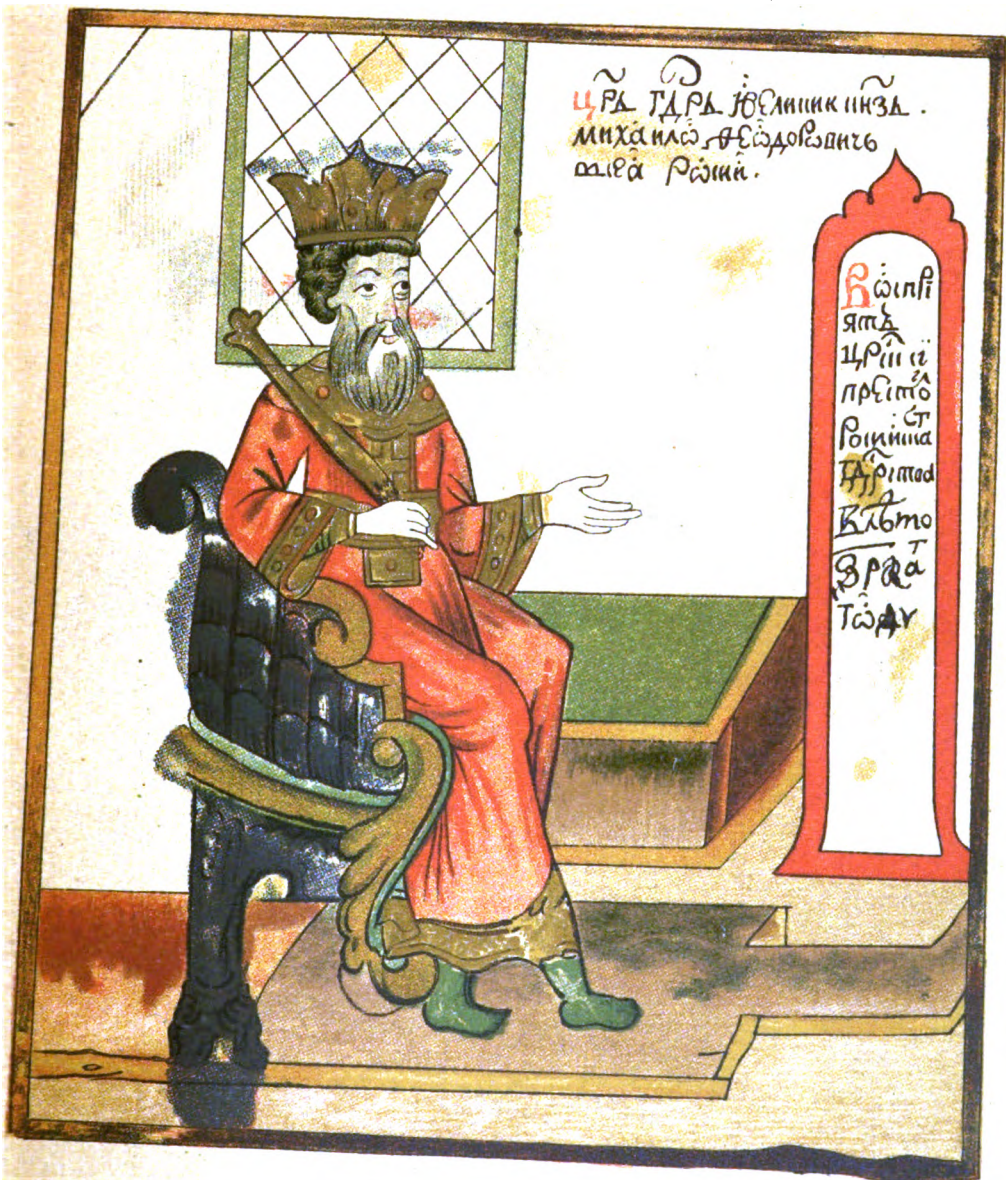 Цр҃ь гдр҃ь и великии кнѧзь
михаилѡ ѳеѡдоровичь
всеѧ рѡсиї.
Вѡспрі
ятъ
црⷭ҇кїй
престо́лъ
Росиіиска
гдрⷭ҇тва
В лѣто
≠зрк҃а
го́дꙋ